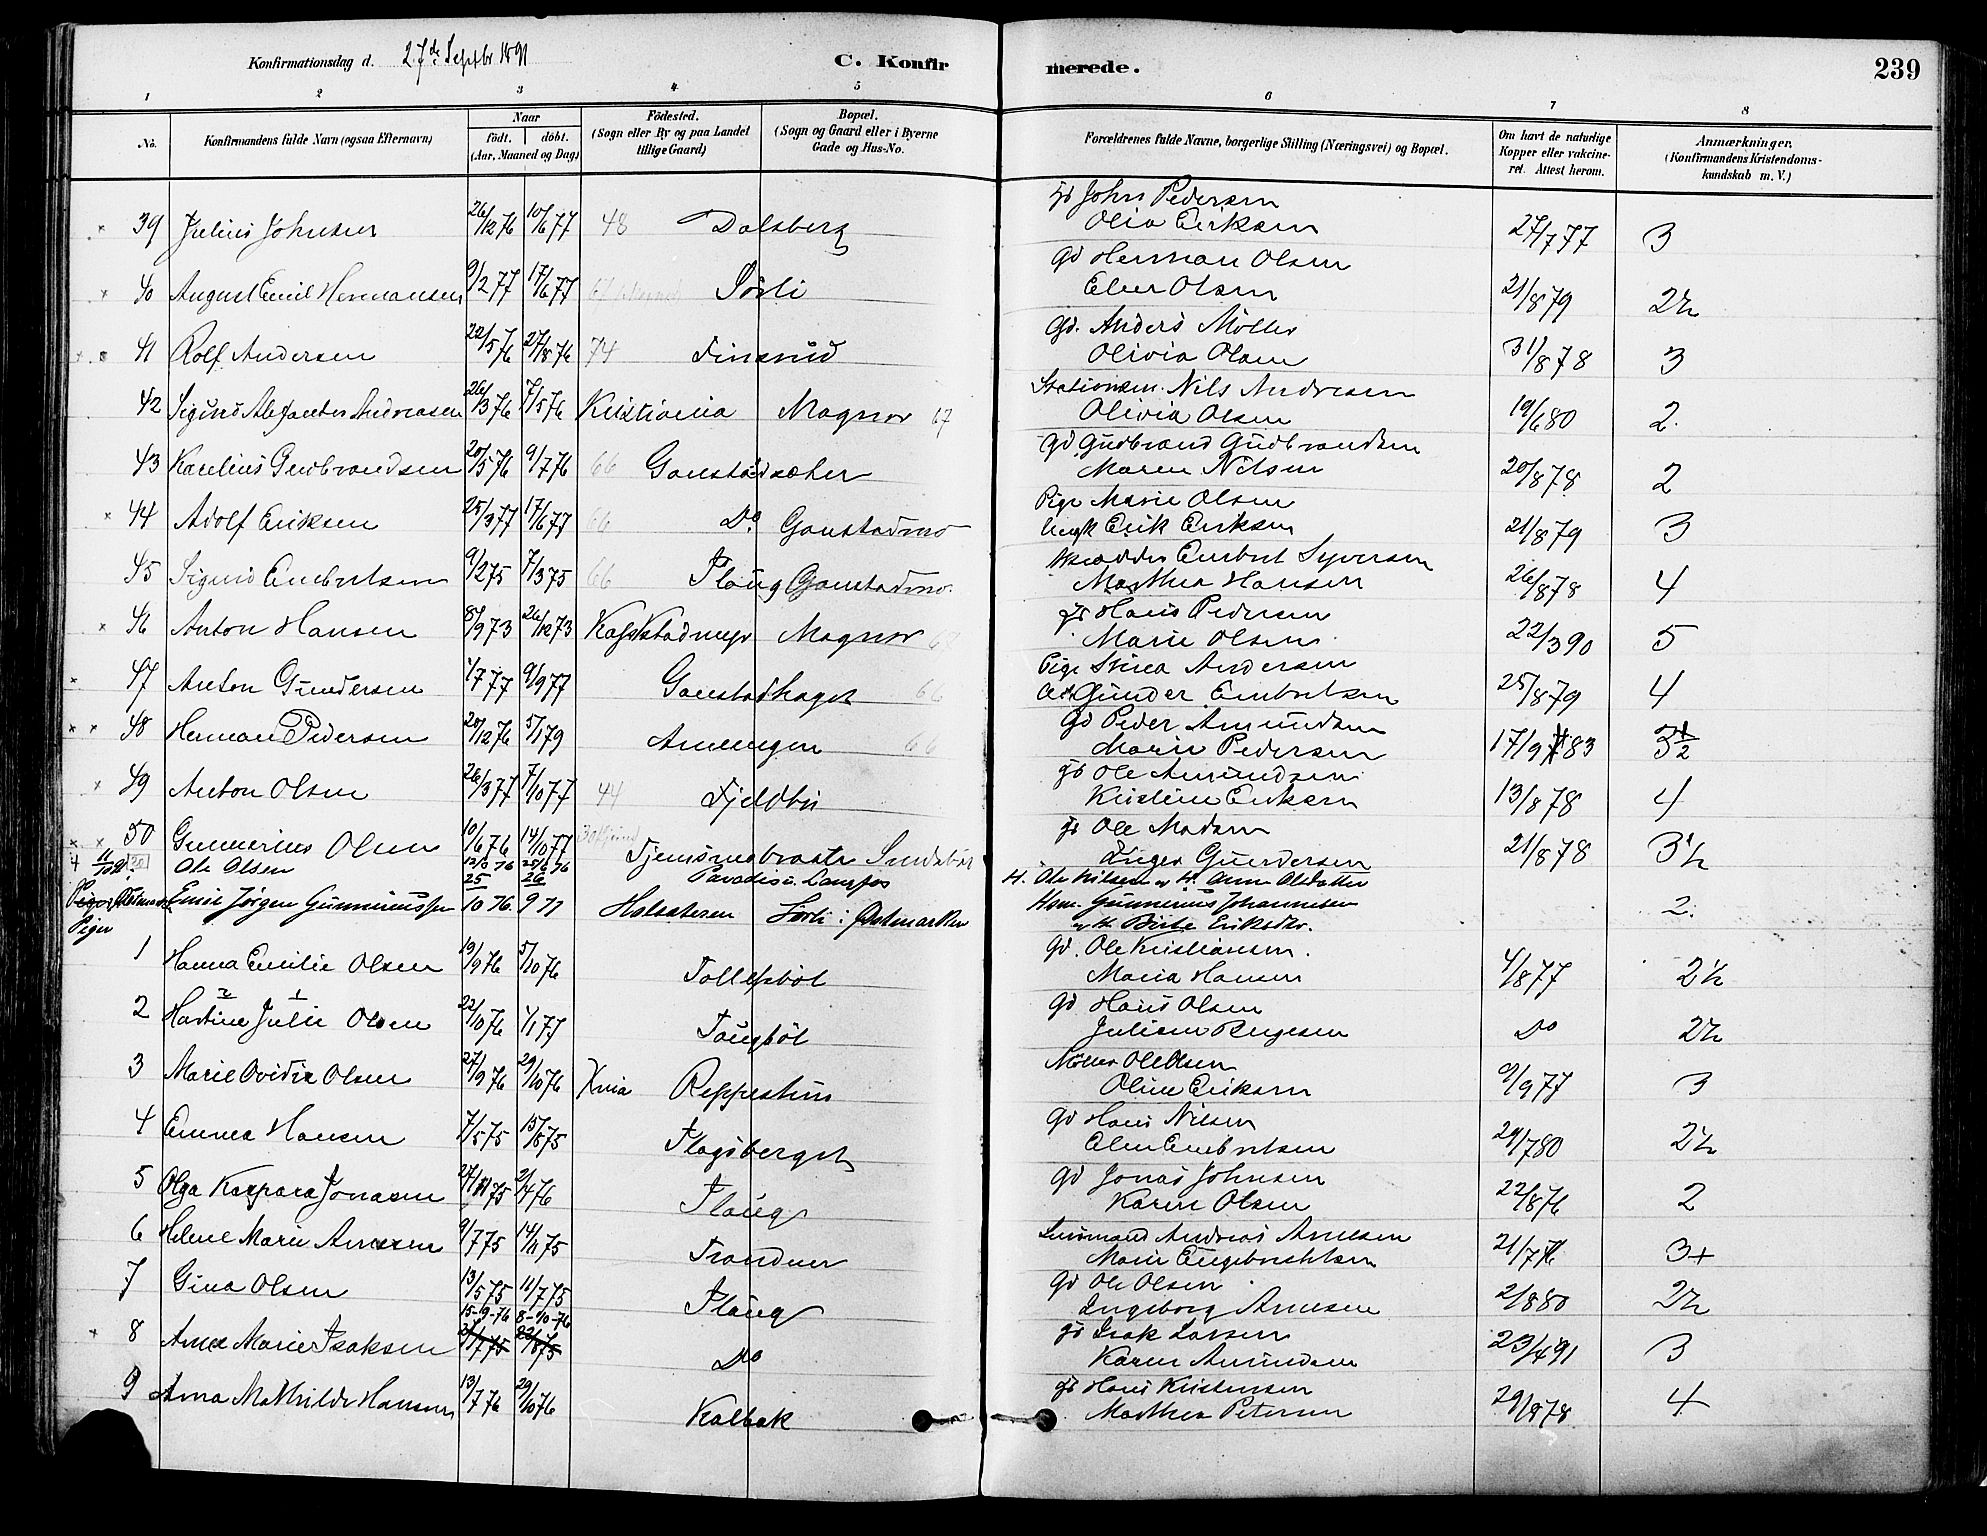 Konfirmationsdag d. 27de Septbr 1891 C. Konfirmerede. 239
1 2 3 4 5 6 7 8
No. Konfirmandens fulde Navn (ogsaa Efternavn) Naar födt. döbt. (Aar, Maaned og Dag) Födested. (Sogn eller By og paa Landet tillige Gaard) Bopæl. (Sogn og Gaard eller i Byerne Gade og Hus-No. Forældrenes fulde Navne, borgerlige Stilling (Næringsvei) og Bopæl. Om havt de naturlige Kopper eller vakcineret. Attest herom. Anmærkninger. (Konfirmandens Kristendomskundskab m. V.)
39 Julius Johnsen 26/12 76 10/6 77 48 Dalsberg Gd John Pedersen
Olia Eriksen 27/7 77 3
40 August Emil Hermansen 9/2 77 17/6 77 Sörli Gd Herman Olsen
Elen Olsen 21/8 79 2½
41 Rolf Andersen 22/5 76 27/8 76 74 Finsrud Gd. Anders Möller
Olivia Olsen 31/8 78 3
42 Sigurd Alexander Andresen 26/3 76 7/5 76 Kristiania Magnor 67 Stationsm. Nils Andresen
Olivia Olsen 19/6 80 2.
43 Karelius Gudbrandsen 20/5 76 9/7 76 66 Gaustadsæter Gd Gudbrand Gudbrandsen
Maren Nilsen 20/8 78 2
44 Adolf Eriksen 25/3 77 17/6 77 66 Do. Gaustadmo Pige Marie Olsen
Erik Eriksen 21/8 79 3
45 Sigurd Embretsen 9/2 75 7/3 75 66 Plaug Gaustadmo. Skrædder Embret Syversen
Marthea Hansen 26/8 78 4
46 Anton Hansen 8/9 73 26/12 73 Magnor Hans Pedersen
Marie Olsen 22/3 90 5
47 Anton Gundersen 1/7 77 9/9 77 Gaustadhaget 66 Pige Stina Andersen
Gunder Embretsen 25/8 79 4
48 Herman Pedersen 20/12 76 5/1 79 66 Gd Peder Amundsen
Marie Pedersen 17/9 83 3½
49 Anton Olsen 26/3 77 7/10 77 44 Fjeldbu Ole Amundsen
Kristine Eriksen 13/8 78 4
50 Gunnerius Olsen 10/6 76 14/10 77 Ole Madsen
Inger Gundersen 21/8 78 3½
Ole Olsen Paradis i Langfos Ole Nilsen og H. Anne Olsdatter
Emil Jørgen Gunneriussen 25/10 76. 26/9 77 Halsteren Sörli i Østmarken Hsm. Gunnerius Johannesen
og H. Birte Eriksdtr. 2.
Piger
1 Hanna Emilie Olsen 19/9 76 5/10 76 Tollefsböl Gd. Ole Kristiansen.
Maria Hansen 4/8 77 2½
2 Hartine Julie Olsen 22/10 76 1/1 77 Taugböl Gd Hans Olsen
Do 2½
3 Marie Ovidie Olsen 27/9 76 29/10 76 Xnia Reppestun Möller Ole Olsen
Oline Eriksen 9/9 77 3
4 Emma Hansen 7/5 75 15/8 75 Plogsberget Gd Hans Nilsen
Elen Embretsen 29/7 80 2½
5 Olga Kaspara Jonasen 27/11 75 2/4 76 Plaug Gd Jonas Johnsen
Karen Olsen 22/8 76 2
6 Helene Marie Arnesen 9/7 75 14/11 75 Trandner Lensmand Andreas Arnesen
Marie Engebrethsen 21/7 76 3+
7 Gina Olsen 13/5 75 11/7 75 Plaug Gd Ole Olsen
Ingeborg Arnesen 2/8 80 2½
15-9-76 8-10-76
8 Anne Marie Isaksen Do Isak Larsen
Karen Amundsen 23/4 91 3
9 Anna Mathilde Hansen 13/7 76 29/10 76 Kalbak Hans Kristensen
Marthea Petersen 29/9 78 4